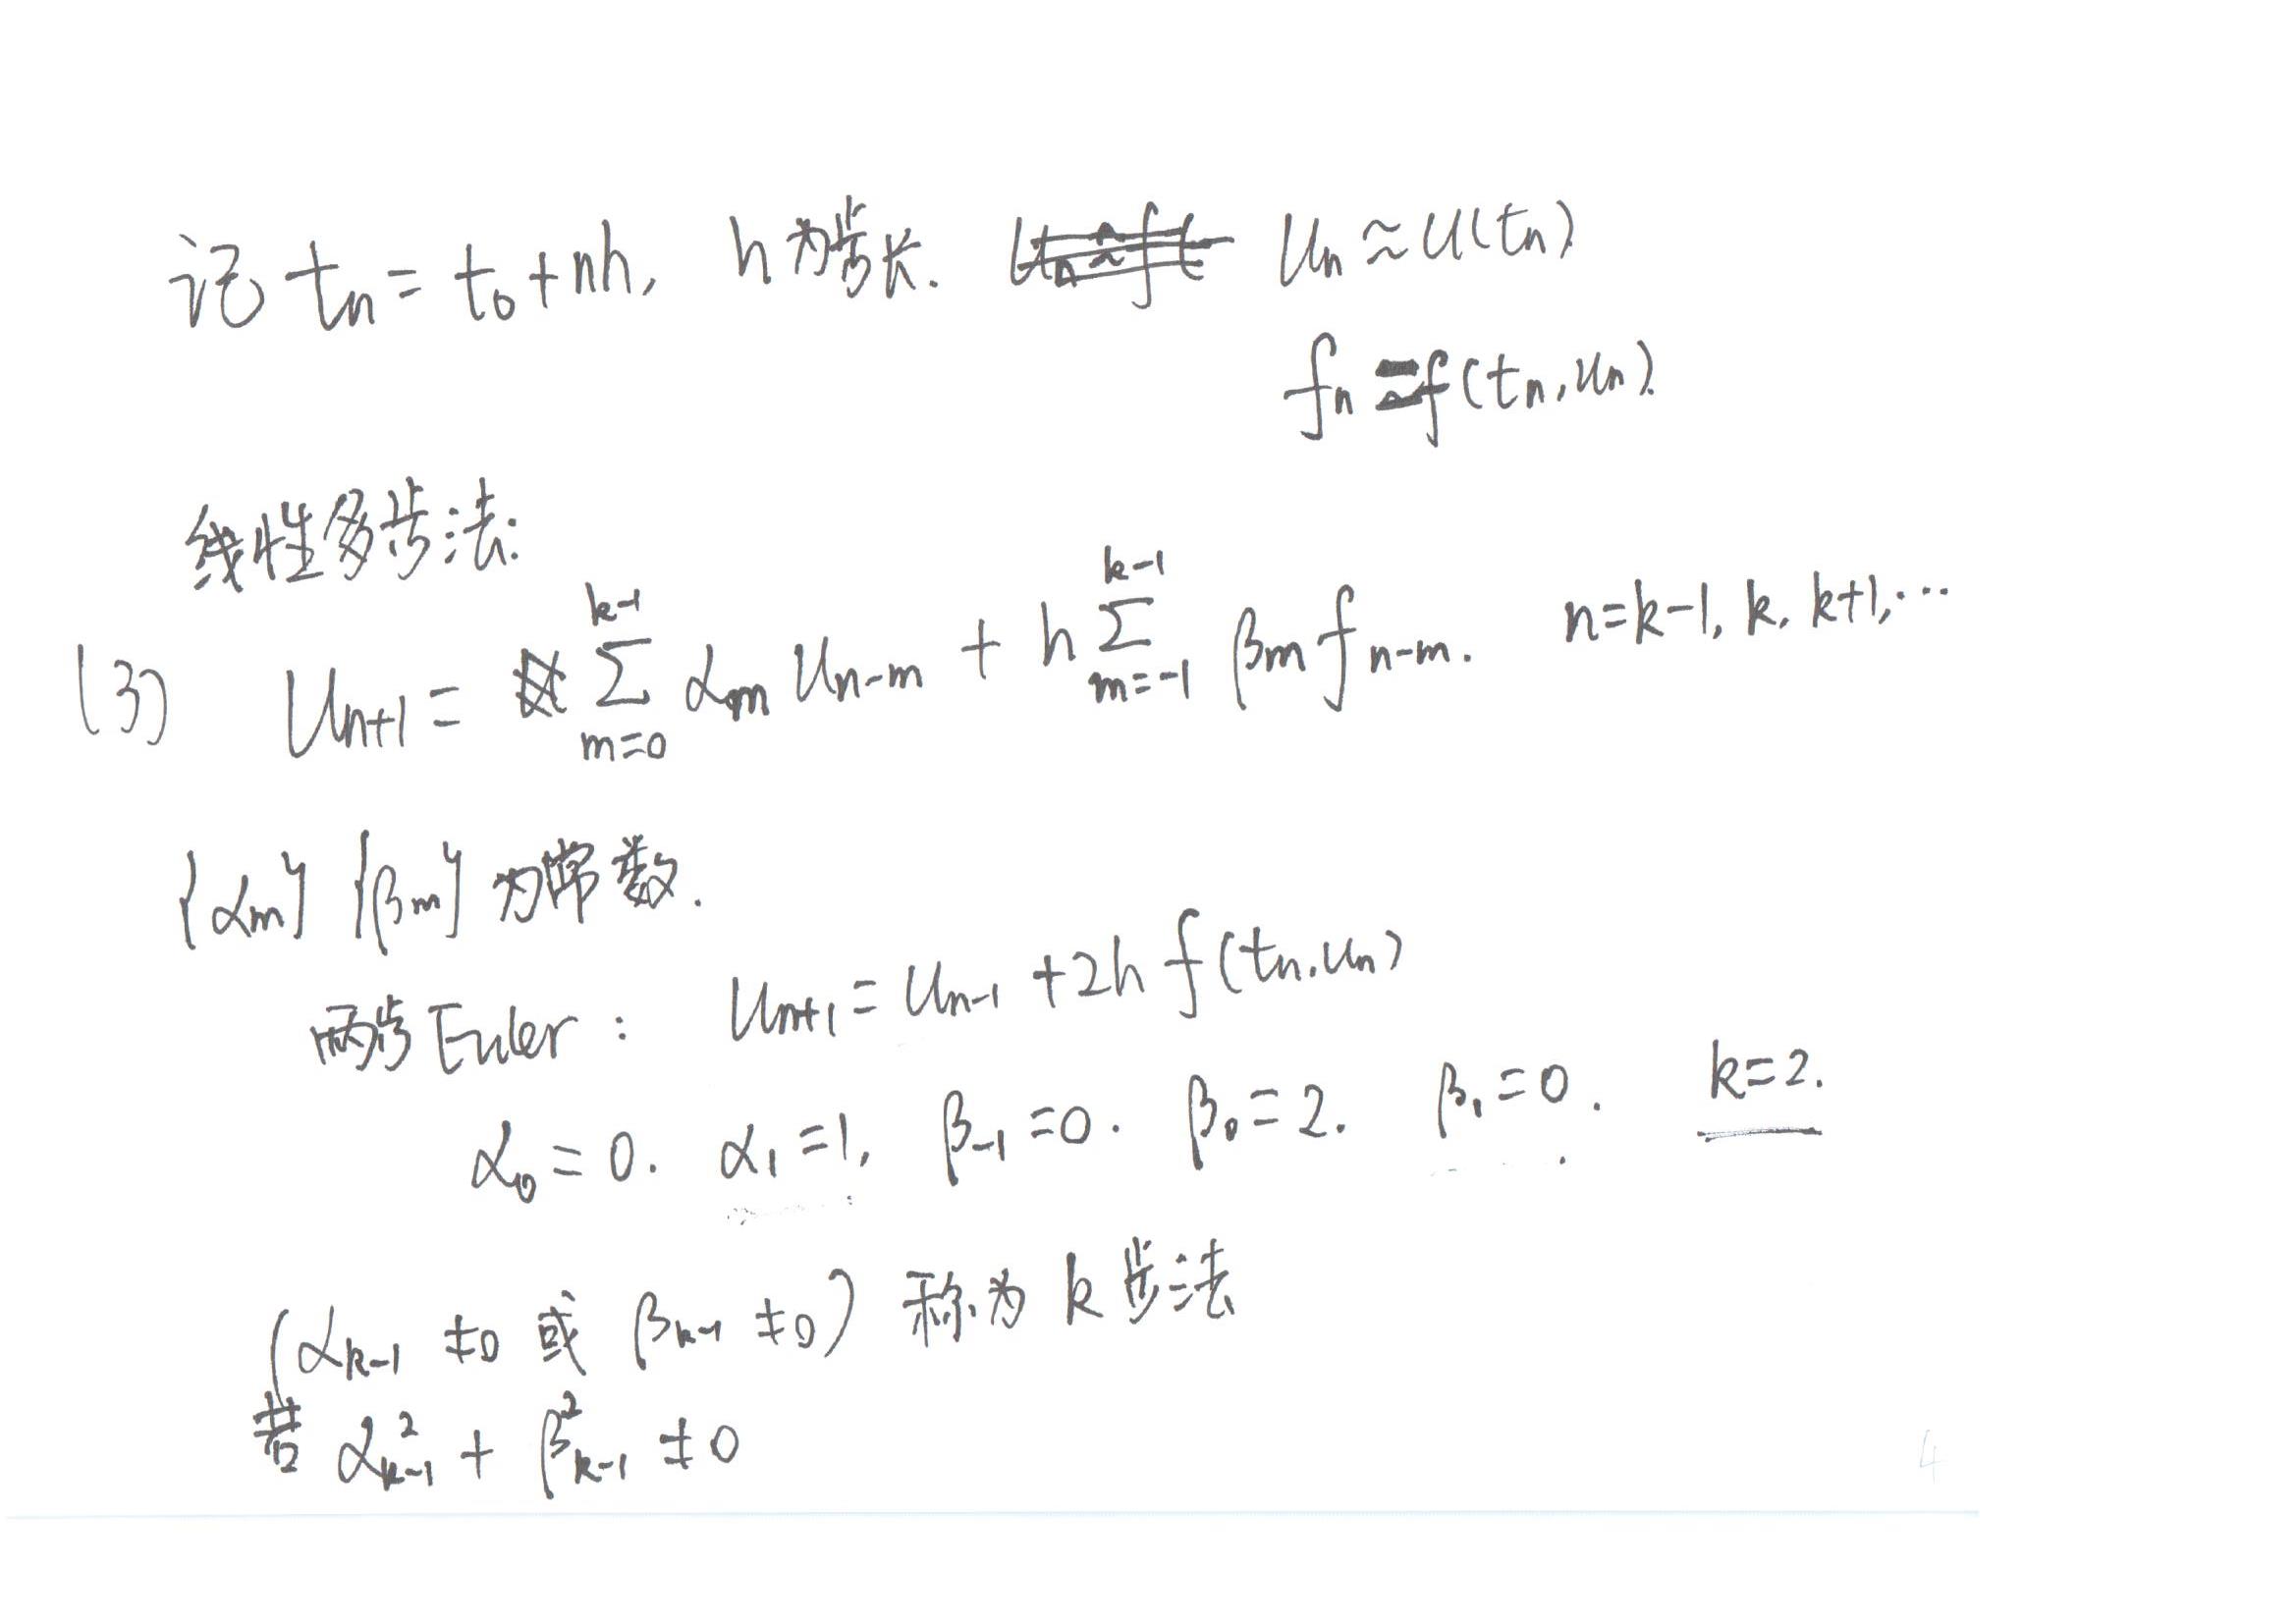 记 tn = t0 + nh, h 为步长. un ≈ u(tn)
fn = f(tn, un).
线性多步法:
(3) un+1 = ∑_{m=0}^{k-1} αm un-m + h ∑_{m=-1}^{k-1} βm fn-m. n=k-1, k, k+1, ⋯
{αm} {βm} 为常数.
两步 Euler: un+1 = un-1 + 2h f(tn, un)
α0 = 0. α1 = 1, β-1 = 0. β0 = 2. β1 = 0. k=2.
(αk-1 ≠ 0 或 βk-1 ≠ 0) 称为 k 步法
若 α²k-1 + β²k-1 ≠ 0
4